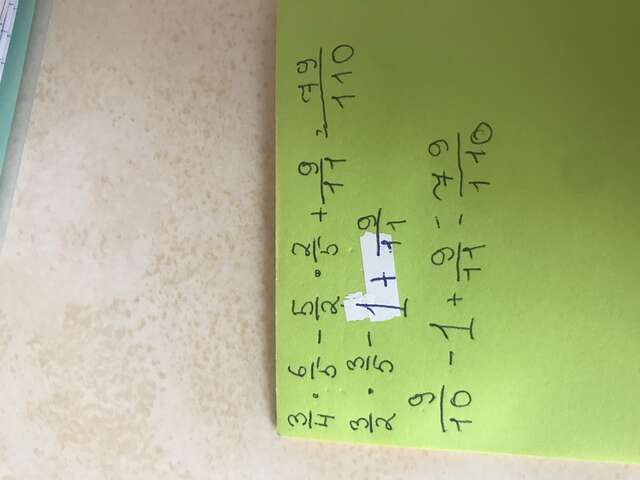 3/4 · 6/5 - 5/2 · 2/5 + 9/11 = 79/110
3/2 · 3/5 - 1 + 9/11
9/10 - 1 + 9/11 = 79/110